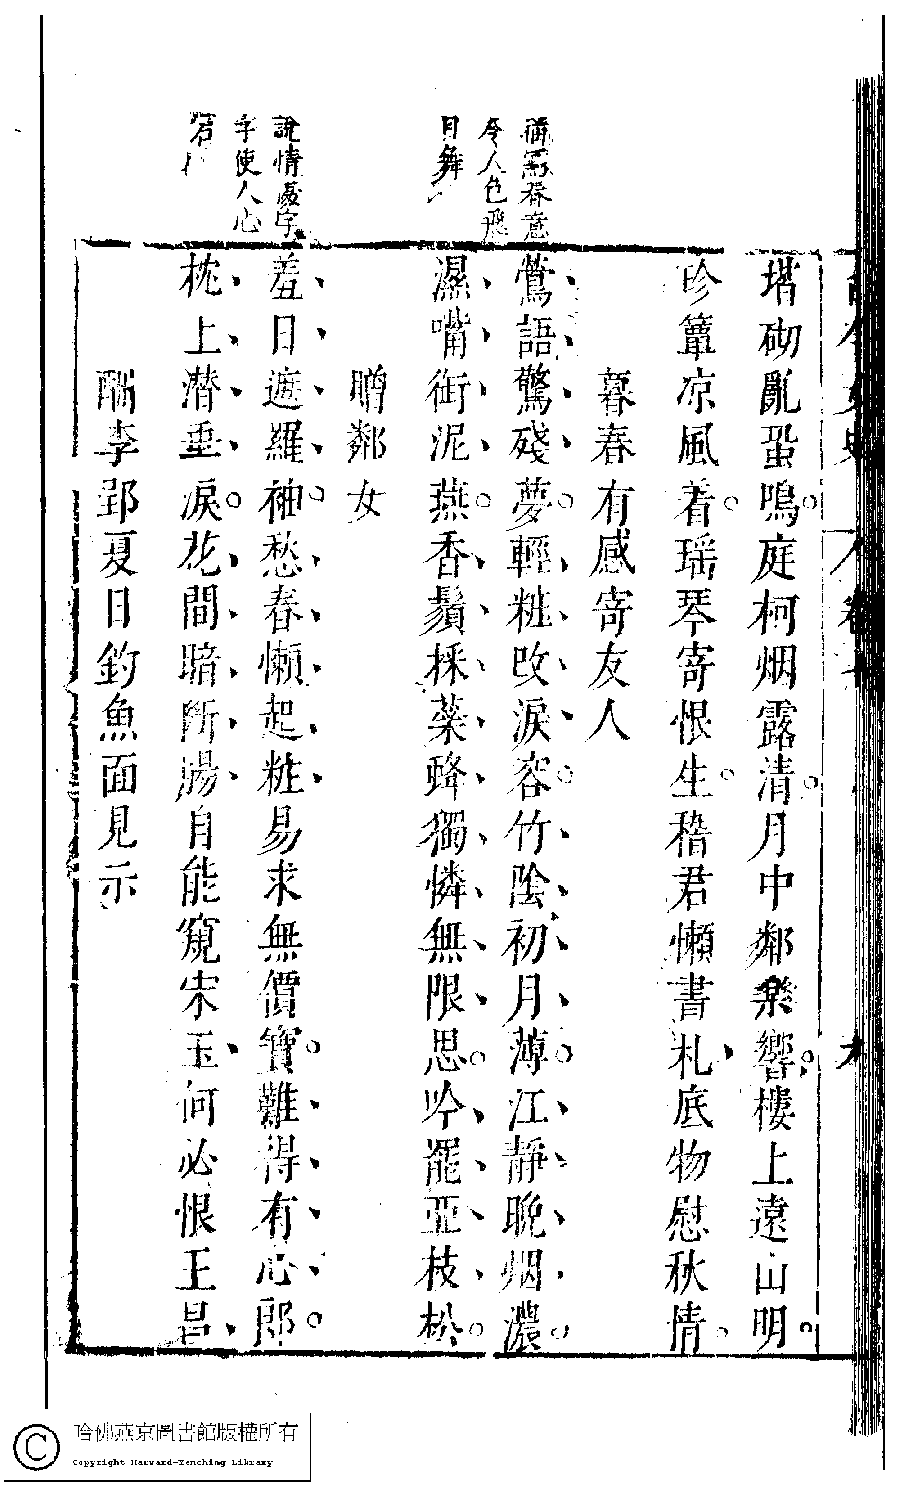 堦砌亂蛩鳴庭柯烟露清月中鄰樂響樓上遠山明
珍簟凉風着瑶琴寄恨生嵇君懶書札底物慰秋情
暮春有感寄友人
鶯語驚殘夢輕粧改淚容竹陰初月薄江靜晚烟濃
濕嘴銜泥燕香鬚採蘂蜂獨憐無限思吟罷亞枝松
贈鄰女
羞日遮羅袖愁春懶起粧易求無價寶難得有心郎
枕上潜垂淚花間暗斷腸自能窺宋玉何必恨王昌
酬李郢夏日釣魚面見示
春意
令人色飛
目舞
說情處字
字使人心
哈佛燕京圖書館版權所有
Copyright Harvard-Yenching Library